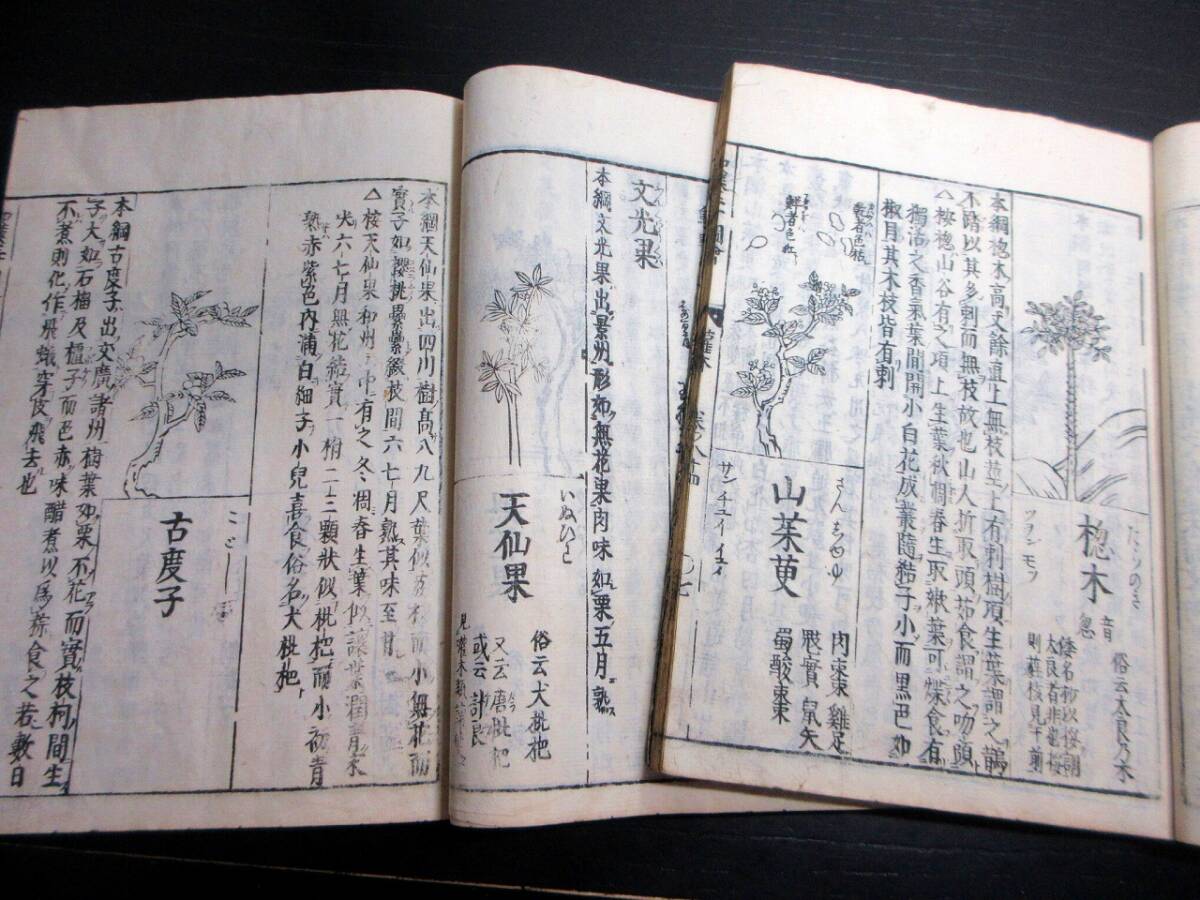 たらのき
楤木
音
怱
ツヲン モツ
俗云太良乃木
本綱楤木高丈餘直上無枝莖上有刺樹頂生葉謂之鵲
不踏以其多刺而無枝故也山人折取頭茹食謂之吻頭
△按楤山谷有之頂上生葉秋凋春生取嫩葉可煠食有
獨活之香氣葉間開小白花成叢隨結子小而黑色如
椒目其木枝皆有刺
さんちゆゆ
山茱萸
サン チユイ イユイ
肉棗 雞足
鬾實 鼠矢
蜀酸棗
文光果
本綱文光果出景州形如無花果肉味如栗五月熟
いぬひは
天仙果
俗云犬枇杷
又云唐枇杷
本綱天仙果出四川樹高八九尺葉似茘枝而小無花而
實子如櫻桃纍纍綴枝間六七月熟其味至甘
△按天仙果和州山中有之冬凋春生葉似讓葉潤青來
六七月無花結實一椏二三顆狀似枇杷而小初青
熟赤紫色內滿白細子小兒喜食俗名犬枇杷
古度子
本綱古度子出交廣諸州樹葉如栗不花而實枝柯間生
子大如石榴及樝子而色赤味醋煮以爲粽食之若數日
不煮則化作飛蟻穿皮飛去也